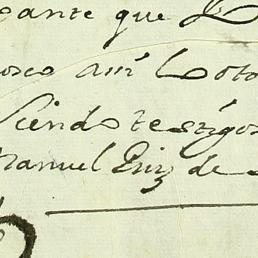 gante que
assi Lo oto
siendo testigos
Manuel Ruiz de